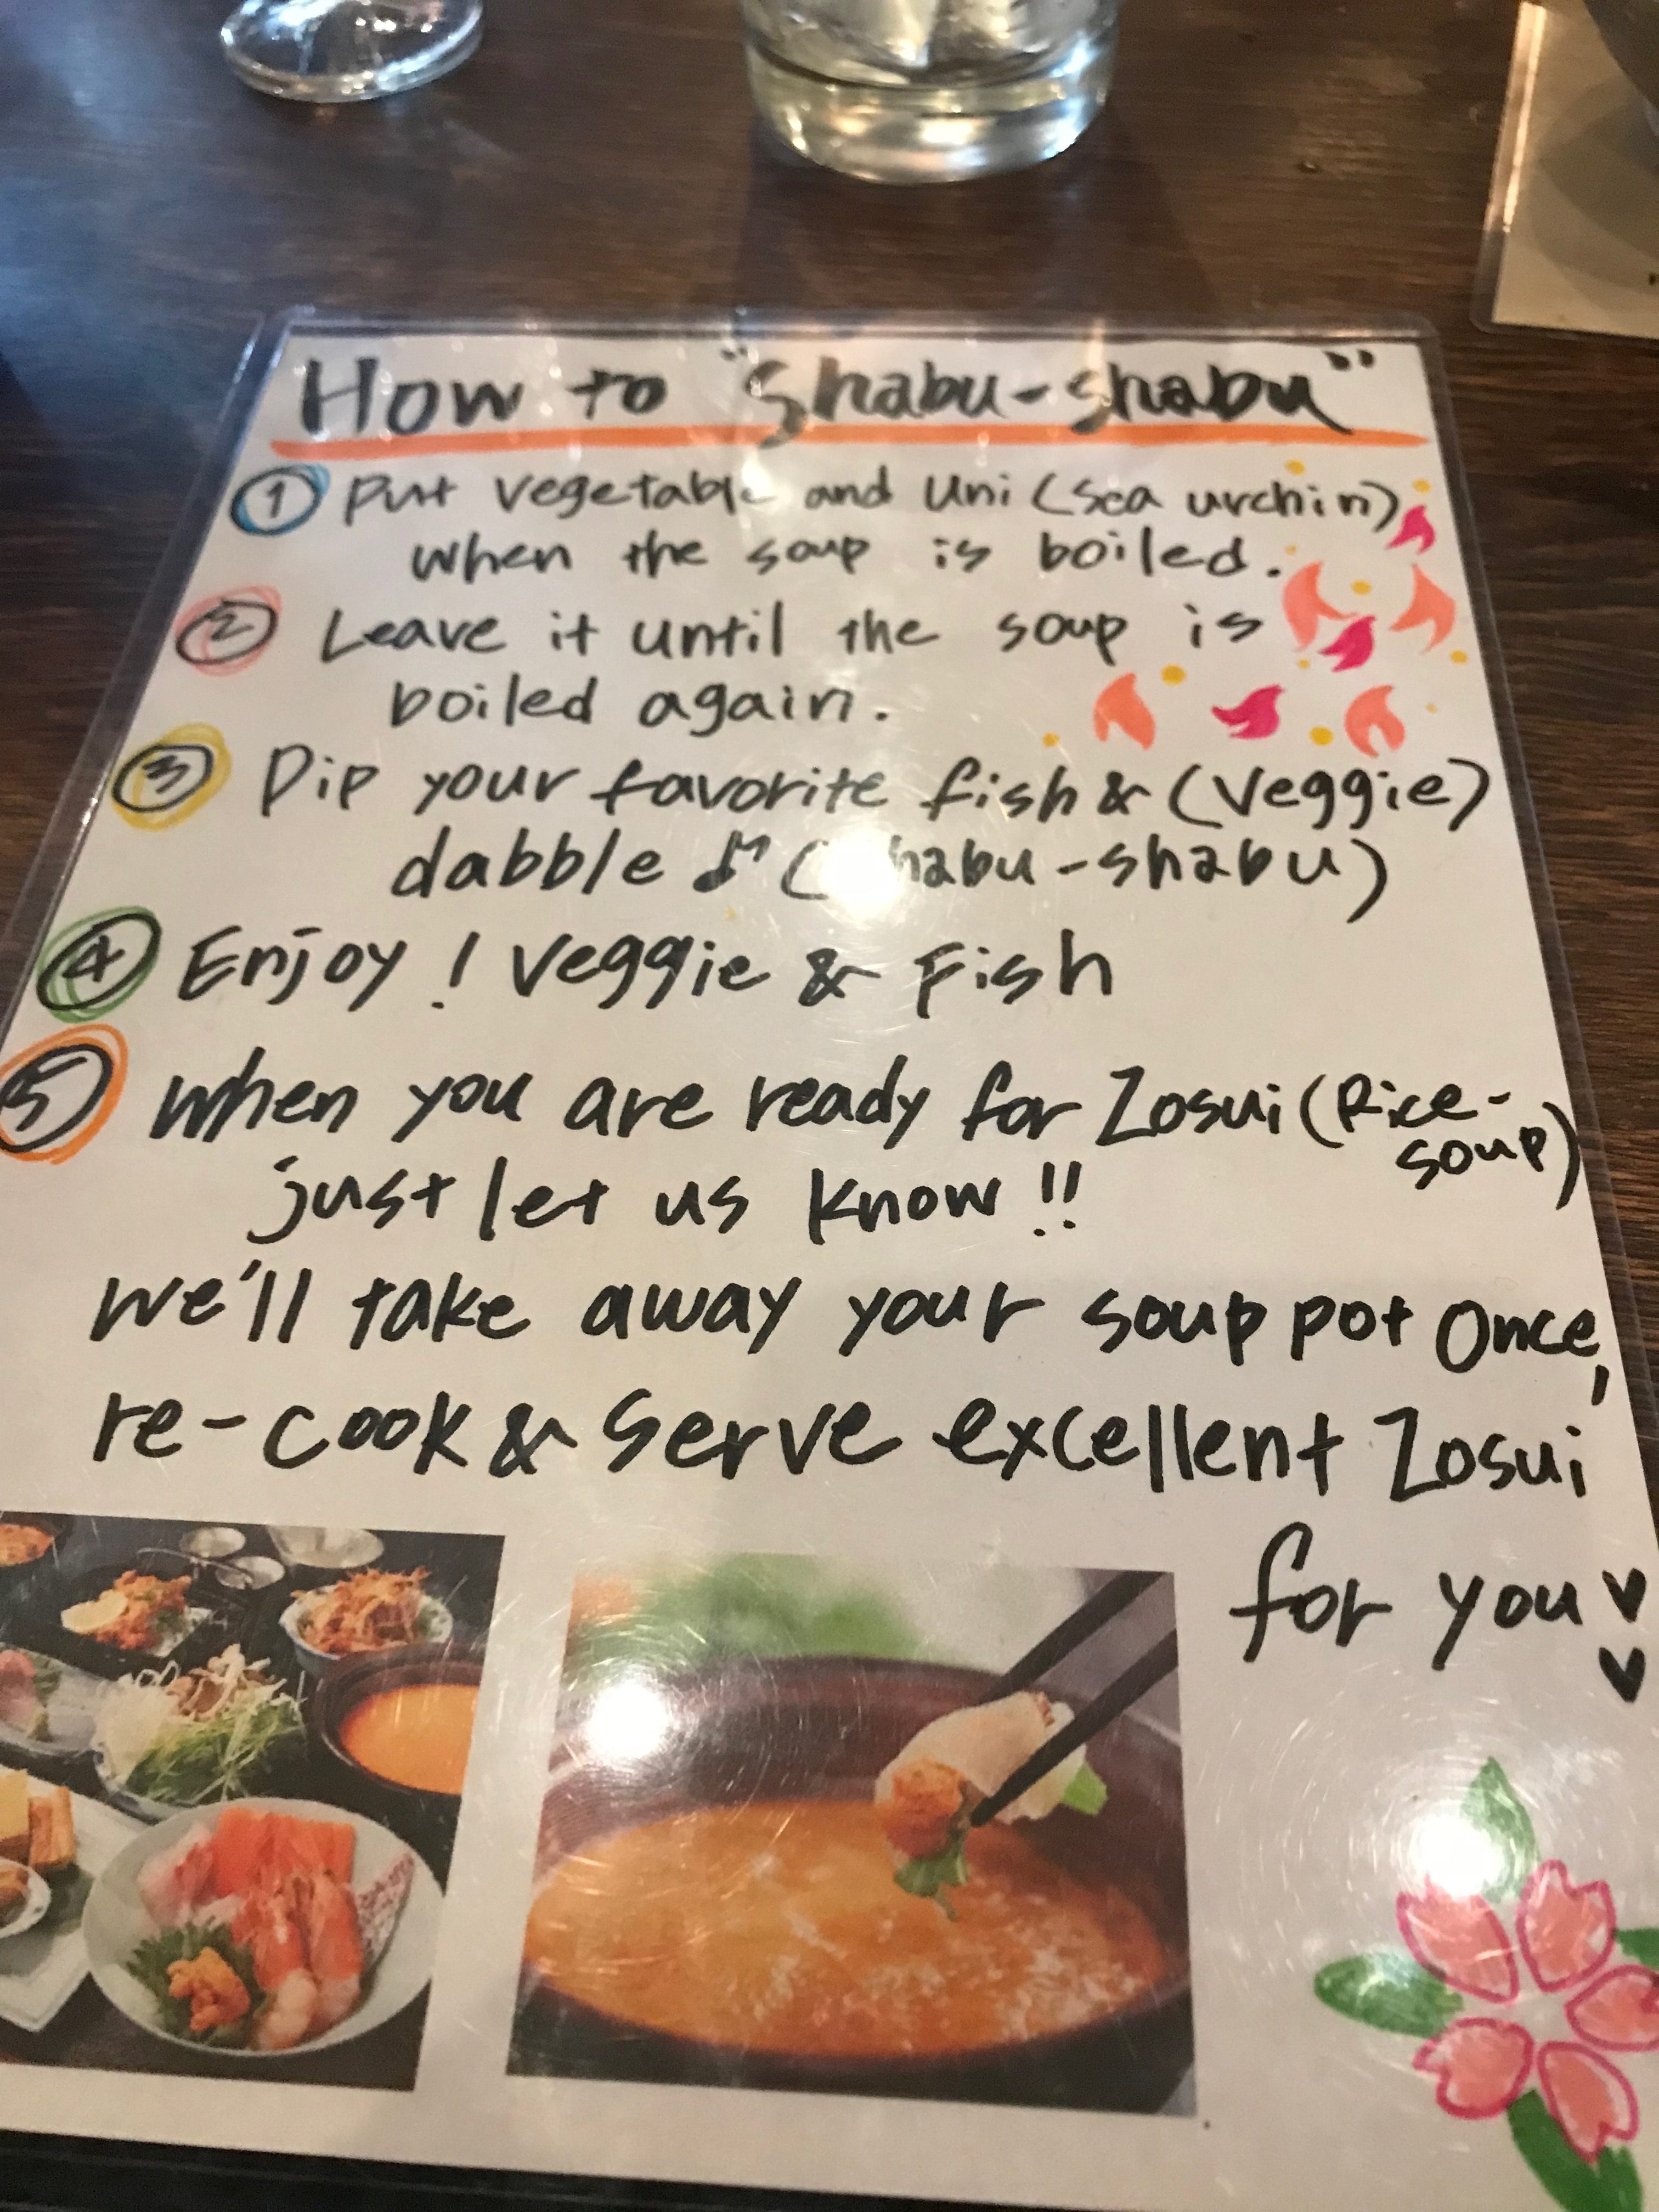 How to "Shabu-shabu"
① Put vegetable and Uni (sea urchin)
when the soup is boiled.
② Leave it until the soup is
boiled again.
③ Dip your favorite fish & (veggie)
dabble ♪ (shabu-shabu)
④ Enjoy! Veggie & Fish
⑤ When you are ready for Zosui (Rice-
soup)
just let us know!!
we'll take away your soup pot once,
re-cook & serve excellent Zosui
for you ♥♥